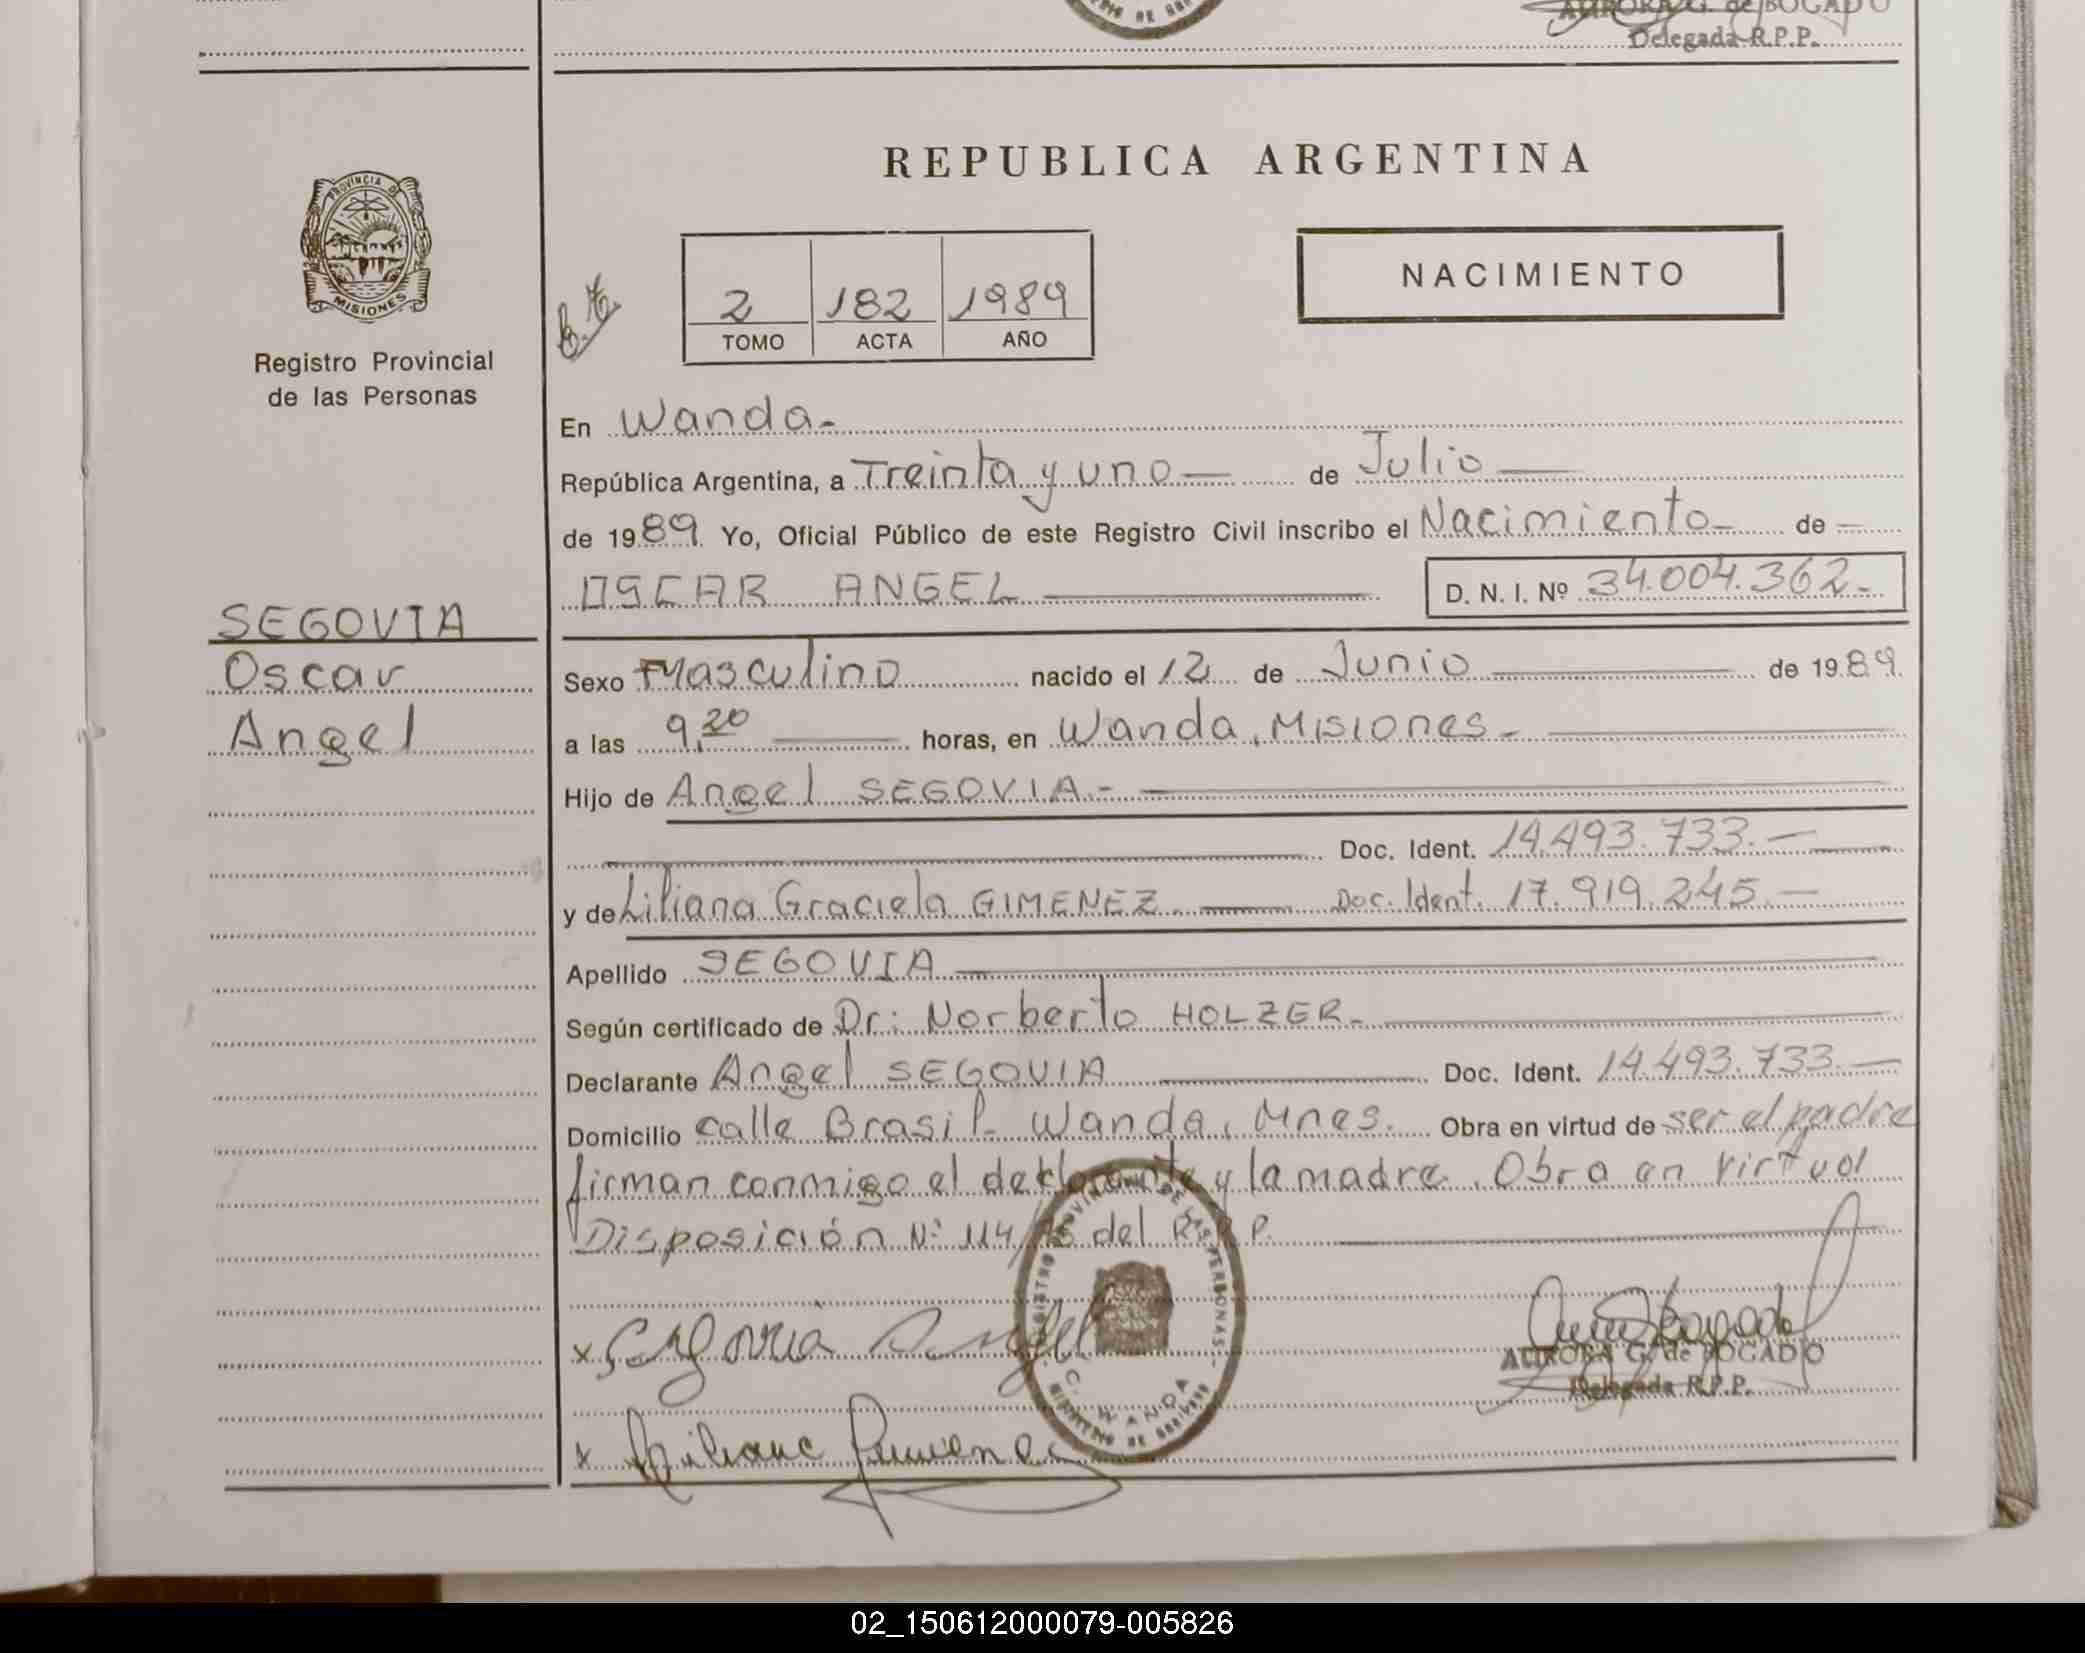 AURORA G. de BOGADO
Delegada R.P.P.
REPUBLICA ARGENTINA
PROVINCIA DE
MISIONES
Registro Provincial
de las Personas
2 182 1989
TOMO ACTA AÑO
NACIMIENTO
En Wanda.-
República Argentina, a Treinta y uno — de Julio —
de 1989. Yo, Oficial Público de este Registro Civil inscribo el Nacimiento - de —
OSCAR ANGEL — D. N. I. Nº 34.004.362.-
SEGOVIA
Oscar
Angel
Sexo Masculino nacido el 12 de Junio — de 1989.
a las 9,20 — horas, en Wanda, Misiones. - —
Hijo de Angel SEGOVIA.- —
— Doc. Ident. 14.493.733.—
y de Liliana Graciela GIMENEZ. — Doc. Ident. 17.919.245.—
Apellido SEGOVIA —
Según certificado de Dr: Norberto HOLZER.- —
Declarante Angel SEGOVIA — Doc. Ident. 14.493.733.—
Domicilio calle Brasil- Wanda, Mnes. Obra en virtud de ser el padre
firman conmigo el declarante y la madre. Obra en virtud
Disposición Nº 114/ del R.P.P. —
x Segovia Angel
AURORA G. de BOGADO
Delegada R.P.P.
x Liliana Gimenez
REGISTRO PROVINCIAL DE LAS PERSONAS
WANDA
MINISTERIO DE GOBIERNO
02_150612000079-005826